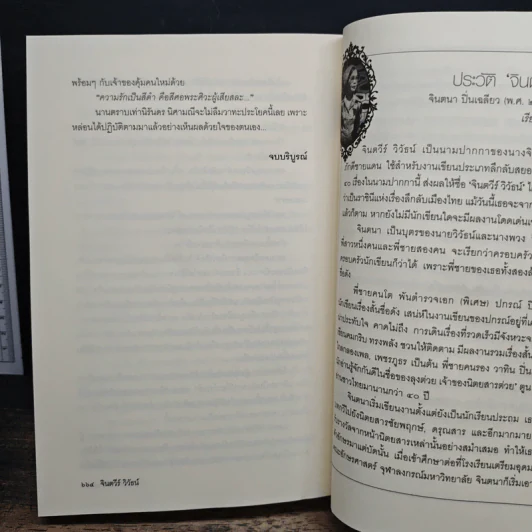 พร้อมๆ กับเจ้าของคุ้มคนใหม่ด้วย
"ความรักเป็นสีดำ คือสีศอพระศิวะผู้เสียสละ..."
นานตราบเท่านิรันดร นิศามณีจะไม่ลืมวาทะประโยคนี้เลย เพราะ
หล่อนได้ปฏิบัติตามมาแล้วอย่างเห็นผลด้วยใจของตนเอง...
จบบริบูรณ์
๖๖๔ จินตวีร์ วิวัธน์
ประวัติ 'จินต
จินตนา ปิ่นเฉลียว (พ.ศ. ๒
เรีย
จินตวีร์ วิวัธน์ เป็นนามปากกาของนางจิ
รักดีชายแดน ใช้สำหรับงานเขียนประเภทลึกลับสยอ
๕๐ เรื่องในนามปากกานี้ ส่งผลให้ชื่อ 'จินตวีร์ วิวัธน์' ไ
ว่าเป็นราชินีแห่งเรื่องลึกลับเมืองไทย แม้วันนี้เธอจะจาก
แล้วก็ตาม หากยังไม่มีนักเขียนใดจะมีผลงานโดดเด่นเ
จินตนา เป็นบุตรของนายวิวัธน์และนางพวง
พี่สาวหนึ่งคนและพี่ชายสองคน จะเรียกว่าครอบครัว
ครอบครัวนักเขียนก็ว่าได้ เพราะพี่ชายของเธอทั้งสองล้
ชื่อดัง
พี่ชายคนโต พันตำรวจเอก (พิเศษ) ปกรณ์ ปิ
นักเขียนเรื่องสั้นชื่อดัง เสน่ห์ในงานเขียนของปกรณ์อยู่ที่
น่าประทับใจ คาดไม่ถึง การเดินเรื่องที่รวดเร็วมีจังหวะจ
เขียนคมกริบ ทรงพลัง ชวนให้ติดตาม มีผลงานรวมเรื่องสั้น
เพชรภูธร เป็นต้น พี่ชายคนรอง วาทิน ปิ่น
นักอ่านรู้จักกันดีในชื่อของลุงต่วย เจ้าของนิตยสารต่วย'ตูน
ชาวไทยมานานกว่า ๔๐ ปี
จินตนาเริ่มเขียนงานตั้งแต่ยังเป็นนักเรียนประถม เธ
ไปยังนิตยสารชัยพฤกษ์, ดรุณสาร และอีกมากมาย
รางวัลจากหน้านิตยสารเหล่านั้นอย่างสม่ำเสมอ ทำให้เธ
อักษรมาแต่บัดนั้น เมื่อเข้าศึกษาต่อที่โรงเรียนเตรียมอุดม
คณะอักษรศาสตร์ จุฬาลงกรณ์มหาวิทยาลัย จินตนาก็เริ่มเอา